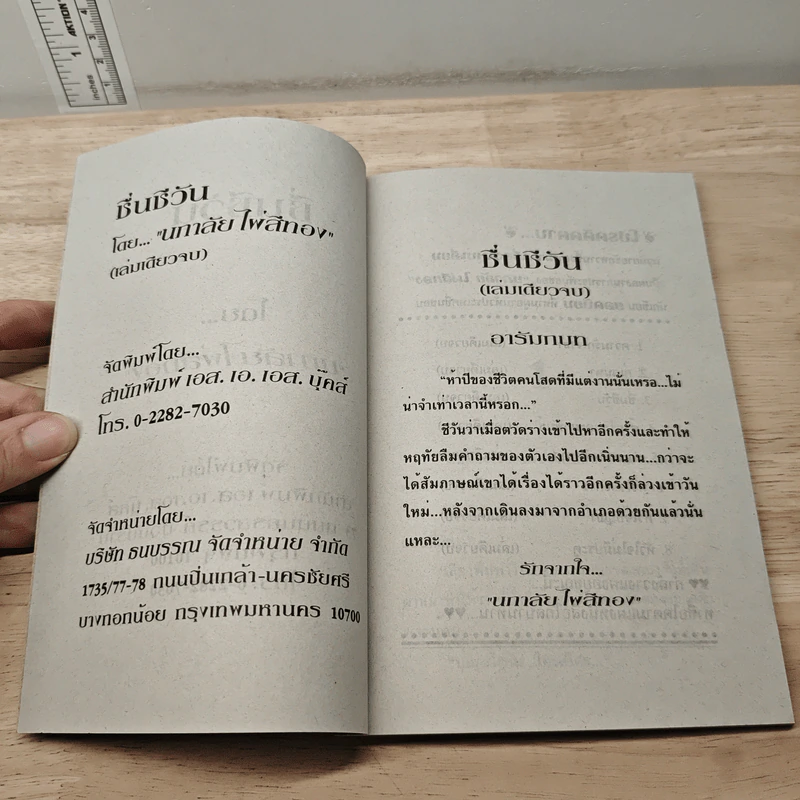 ชื่นชีวัน
โดย... "นภาลัย ไผ่สีทอง"
(เล่มเดียวจบ)
จัดพิมพ์โดย...
สำนักพิมพ์ เอส. เอ. เอส. บุ๊คส์
โทร. 0-2282-7030
จัดจำหน่ายโดย...
บริษัท ธนบรรณ จัดจำหน่าย จำกัด
1735/77-78 ถนนปิ่นเกล้า-นครชัยศรี
บางกอกน้อย กรุงเทพมหานคร 10700
ชื่นชีวัน
(เล่มเดียวจบ)
อารัมภบท
“ห้าปีของชีวิตคนโสดที่มีแต่งานนั่นเหรอ...ไม่
น่าจำเท่าเวลานี้หรอก...”
ชีวันว่าเมื่อตวัดร่างเข้าไปหาอีกครั้งและทำให้
หฤทัยลืมคำถามของตัวเองไปอีกเนิ่นนาน...กว่าจะ
ได้สัมภาษณ์เขาได้เรื่องได้ราวอีกครั้งก็ล่วงเข้าวัน
ใหม่...หลังจากเดินลงมาจากอำเภอด้วยกันแล้วนั่น
แหละ...
รักจากใจ...
"นภาลัย ไผ่สีทอง"
inches
1
AKTION